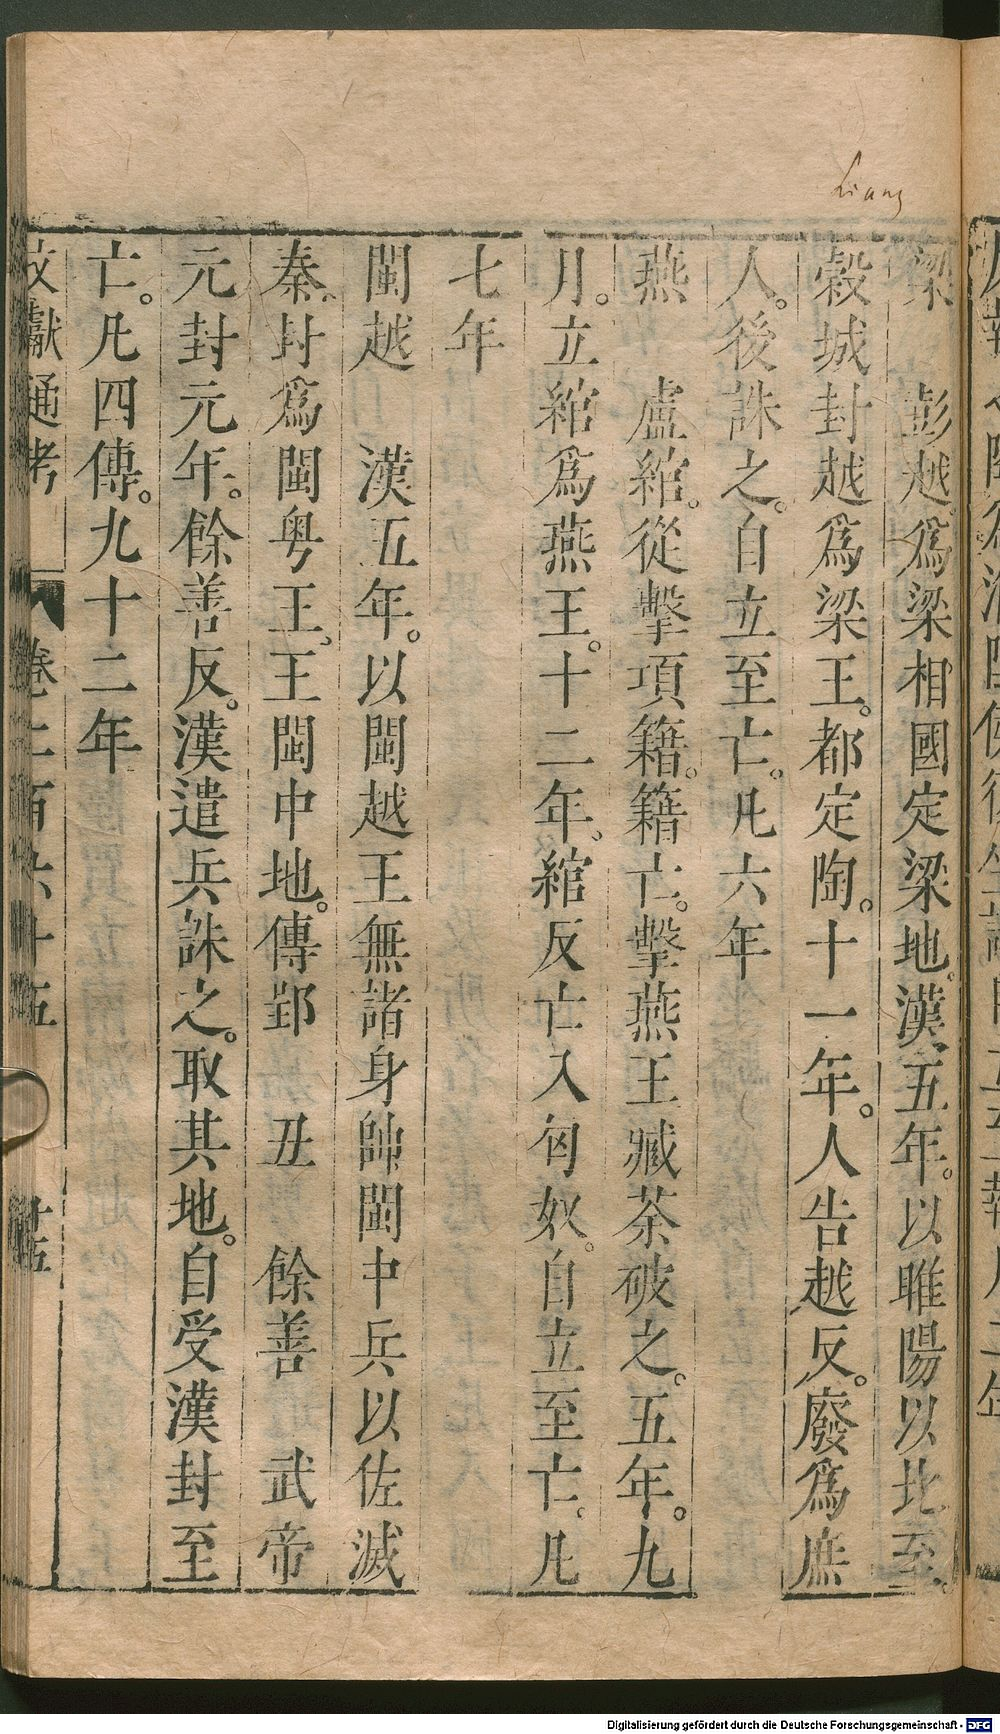 Liang
梁　彭越爲梁相國定梁地漢五年以睢陽以北至
穀城封越爲梁王都定陶十一年人告越反廢爲庶
人後誅之自立至亡凡六年
燕　盧綰從擊項籍籍亡擊燕王臧荼破之五年九
月立綰爲燕王十二年綰反亡入匈奴自立至亡凡
七年
閩越　漢五年以閩越王無諸身帥閩中兵以佐滅
秦封爲閩粤王王閩中地傳郢　丑　餘善　武帝
元封元年餘善反漢遣兵誅之取其地自受漢封至
亡凡四傳九十二年
文獻通考　卷二百六十五
Digitalisierung gefördert durch die Deutsche Forschungsgemeinschaft - DFG